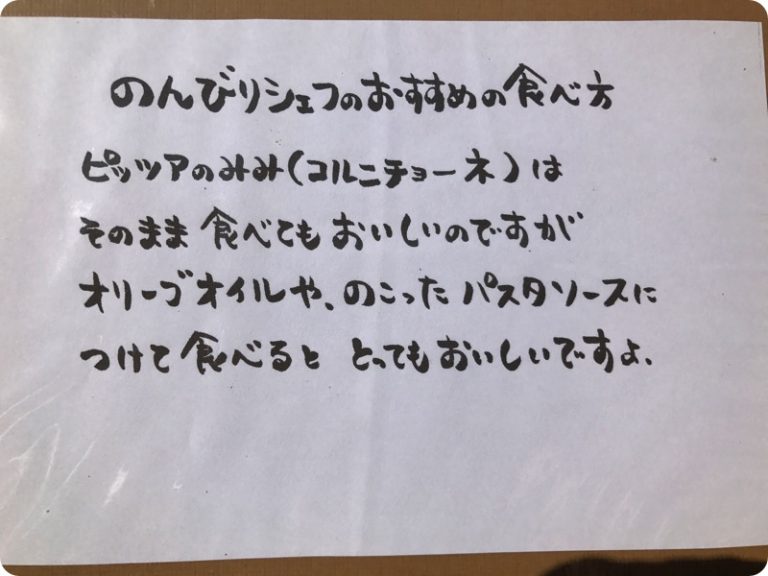 のんびりシェフのおすすめの食べ方
ピッツアのみみ(コルニチョーネ)は
そのまま食べてもおいしいのですが
オリーゴオイルや、のこったパスタソースに
つけて食べると とってもおいしいですよ、